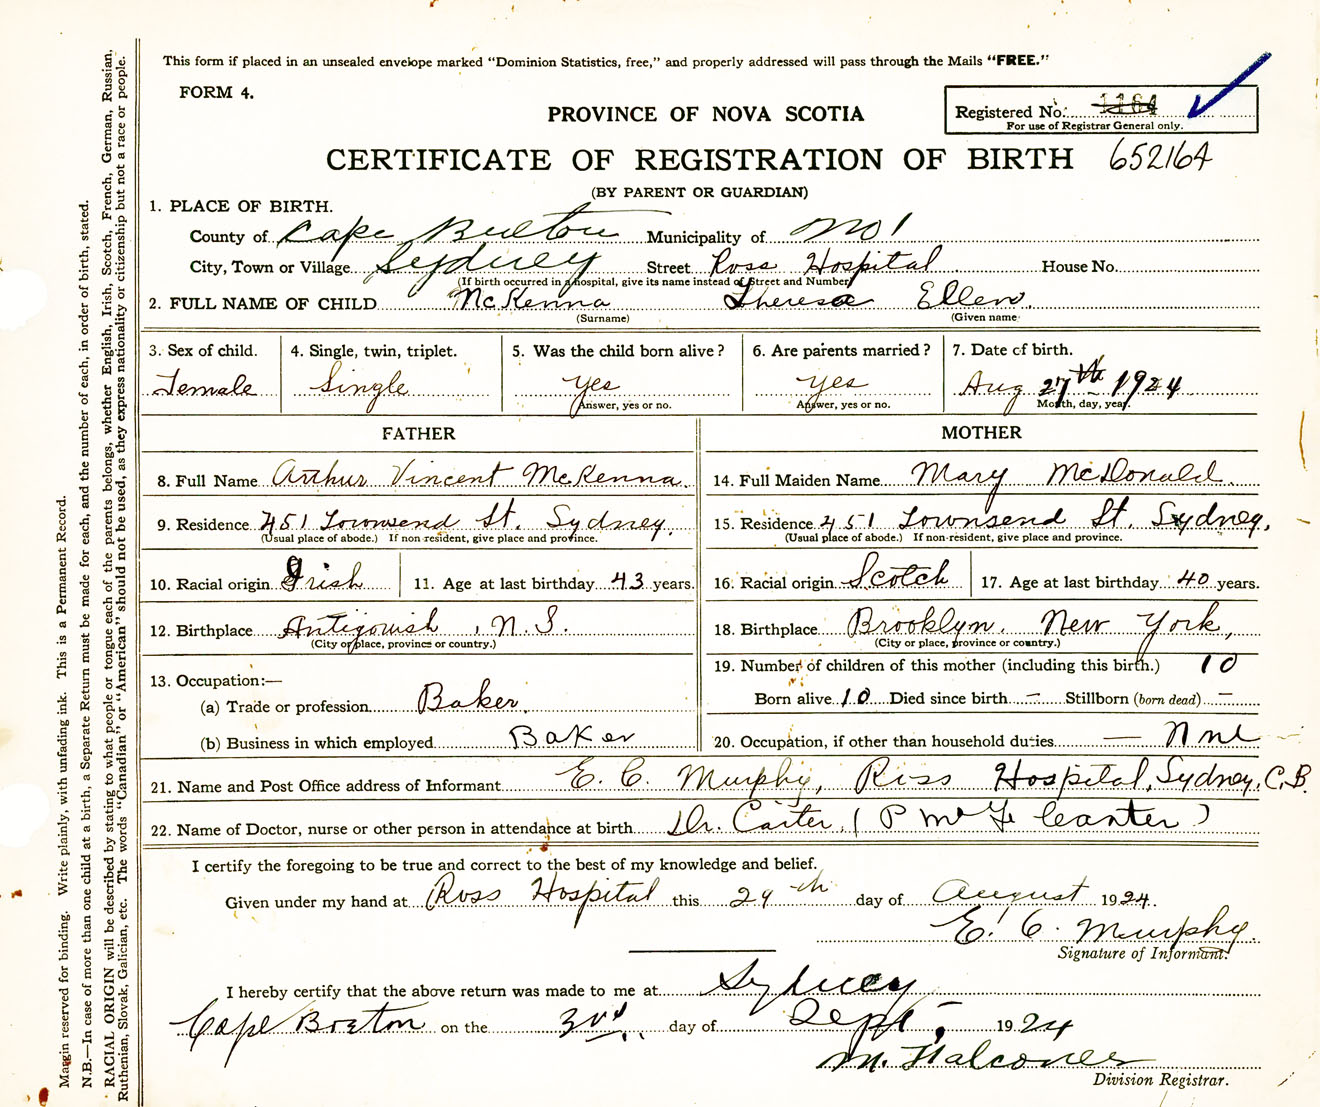 This form if placed in an unsealed envelope marked "Dominion Statistics, free," and properly addressed will pass through the Mails "FREE."
FORM 4.
PROVINCE OF NOVA SCOTIA
Registered No. 1164
For use of Registrar General only.
CERTIFICATE OF REGISTRATION OF BIRTH 652164
(BY PARENT OR GUARDIAN)
1. PLACE OF BIRTH.
County of Cape Breton Municipality of No 1
City, Town or Village Sydney Street Ross Hospital House No.
(If birth occurred in a hospital, give its name instead of Street and Number)
2. FULL NAME OF CHILD McKenna Theresa Ellen
(Surname) (Given name)
3. Sex of child. 4. Single, twin, triplet. 5. Was the child born alive? 6. Are parents married? 7. Date of birth.
Female Single Yes Yes Aug 27th 1924
Answer, yes or no. Answer, yes or no. Month, day, year.
FATHER MOTHER
8. Full Name Arthur Vincent McKenna 14. Full Maiden Name Mary McDonald
9. Residence 451 Townsend St. Sydney. 15. Residence 451 Townsend St. Sydney,
(Usual place of abode.) If non-resident, give place and province. (Usual place of abode.) If non-resident, give place and province.
10. Racial origin Irish 11. Age at last birthday 43 years. 16. Racial origin Scotch 17. Age at last birthday 40 years.
12. Birthplace Antigonish, N.S. 18. Birthplace Brooklyn, New York,
(City or place, province or country.) (City or place, province or country.)
19. Number of children of this mother (including this birth.) 10
13. Occupation:—
(a) Trade or profession Baker. Born alive 10 Died since birth — Stillborn (born dead) —
(b) Business in which employed Baker 20. Occupation, if other than household duties —
21. Name and Post Office address of Informant E. C. Murphy, Ross Hospital, Sydney, C.B.
22. Name of Doctor, nurse or other person in attendance at birth Dr. Carter,
I certify the foregoing to be true and correct to the best of my knowledge and belief.
Given under my hand at Ross Hospital this 29th day of August 1924.
E. C. Murphy.
Signature of Informant.
I hereby certify that the above return was made to me at Sydney
Cape Breton on the 3rd day of Sept. 1924
M.
Division Registrar.
Margin reserved for binding. Write plainly, with unfading ink. This is a Permanent Record.
N.B.—In case of more than one child at a birth, a Separate Return must be made for each, and the number of each, in order of birth, stated.
RACIAL ORIGIN will be described by stating to what people or tongue each of the parents belongs, whether English, Irish, Scotch, French, German, Russian,
Ruthenian, Slovak, Galician, etc. The words "Canadian" or "American" should not be used, as they express nationality or citizenship but not a race or people.